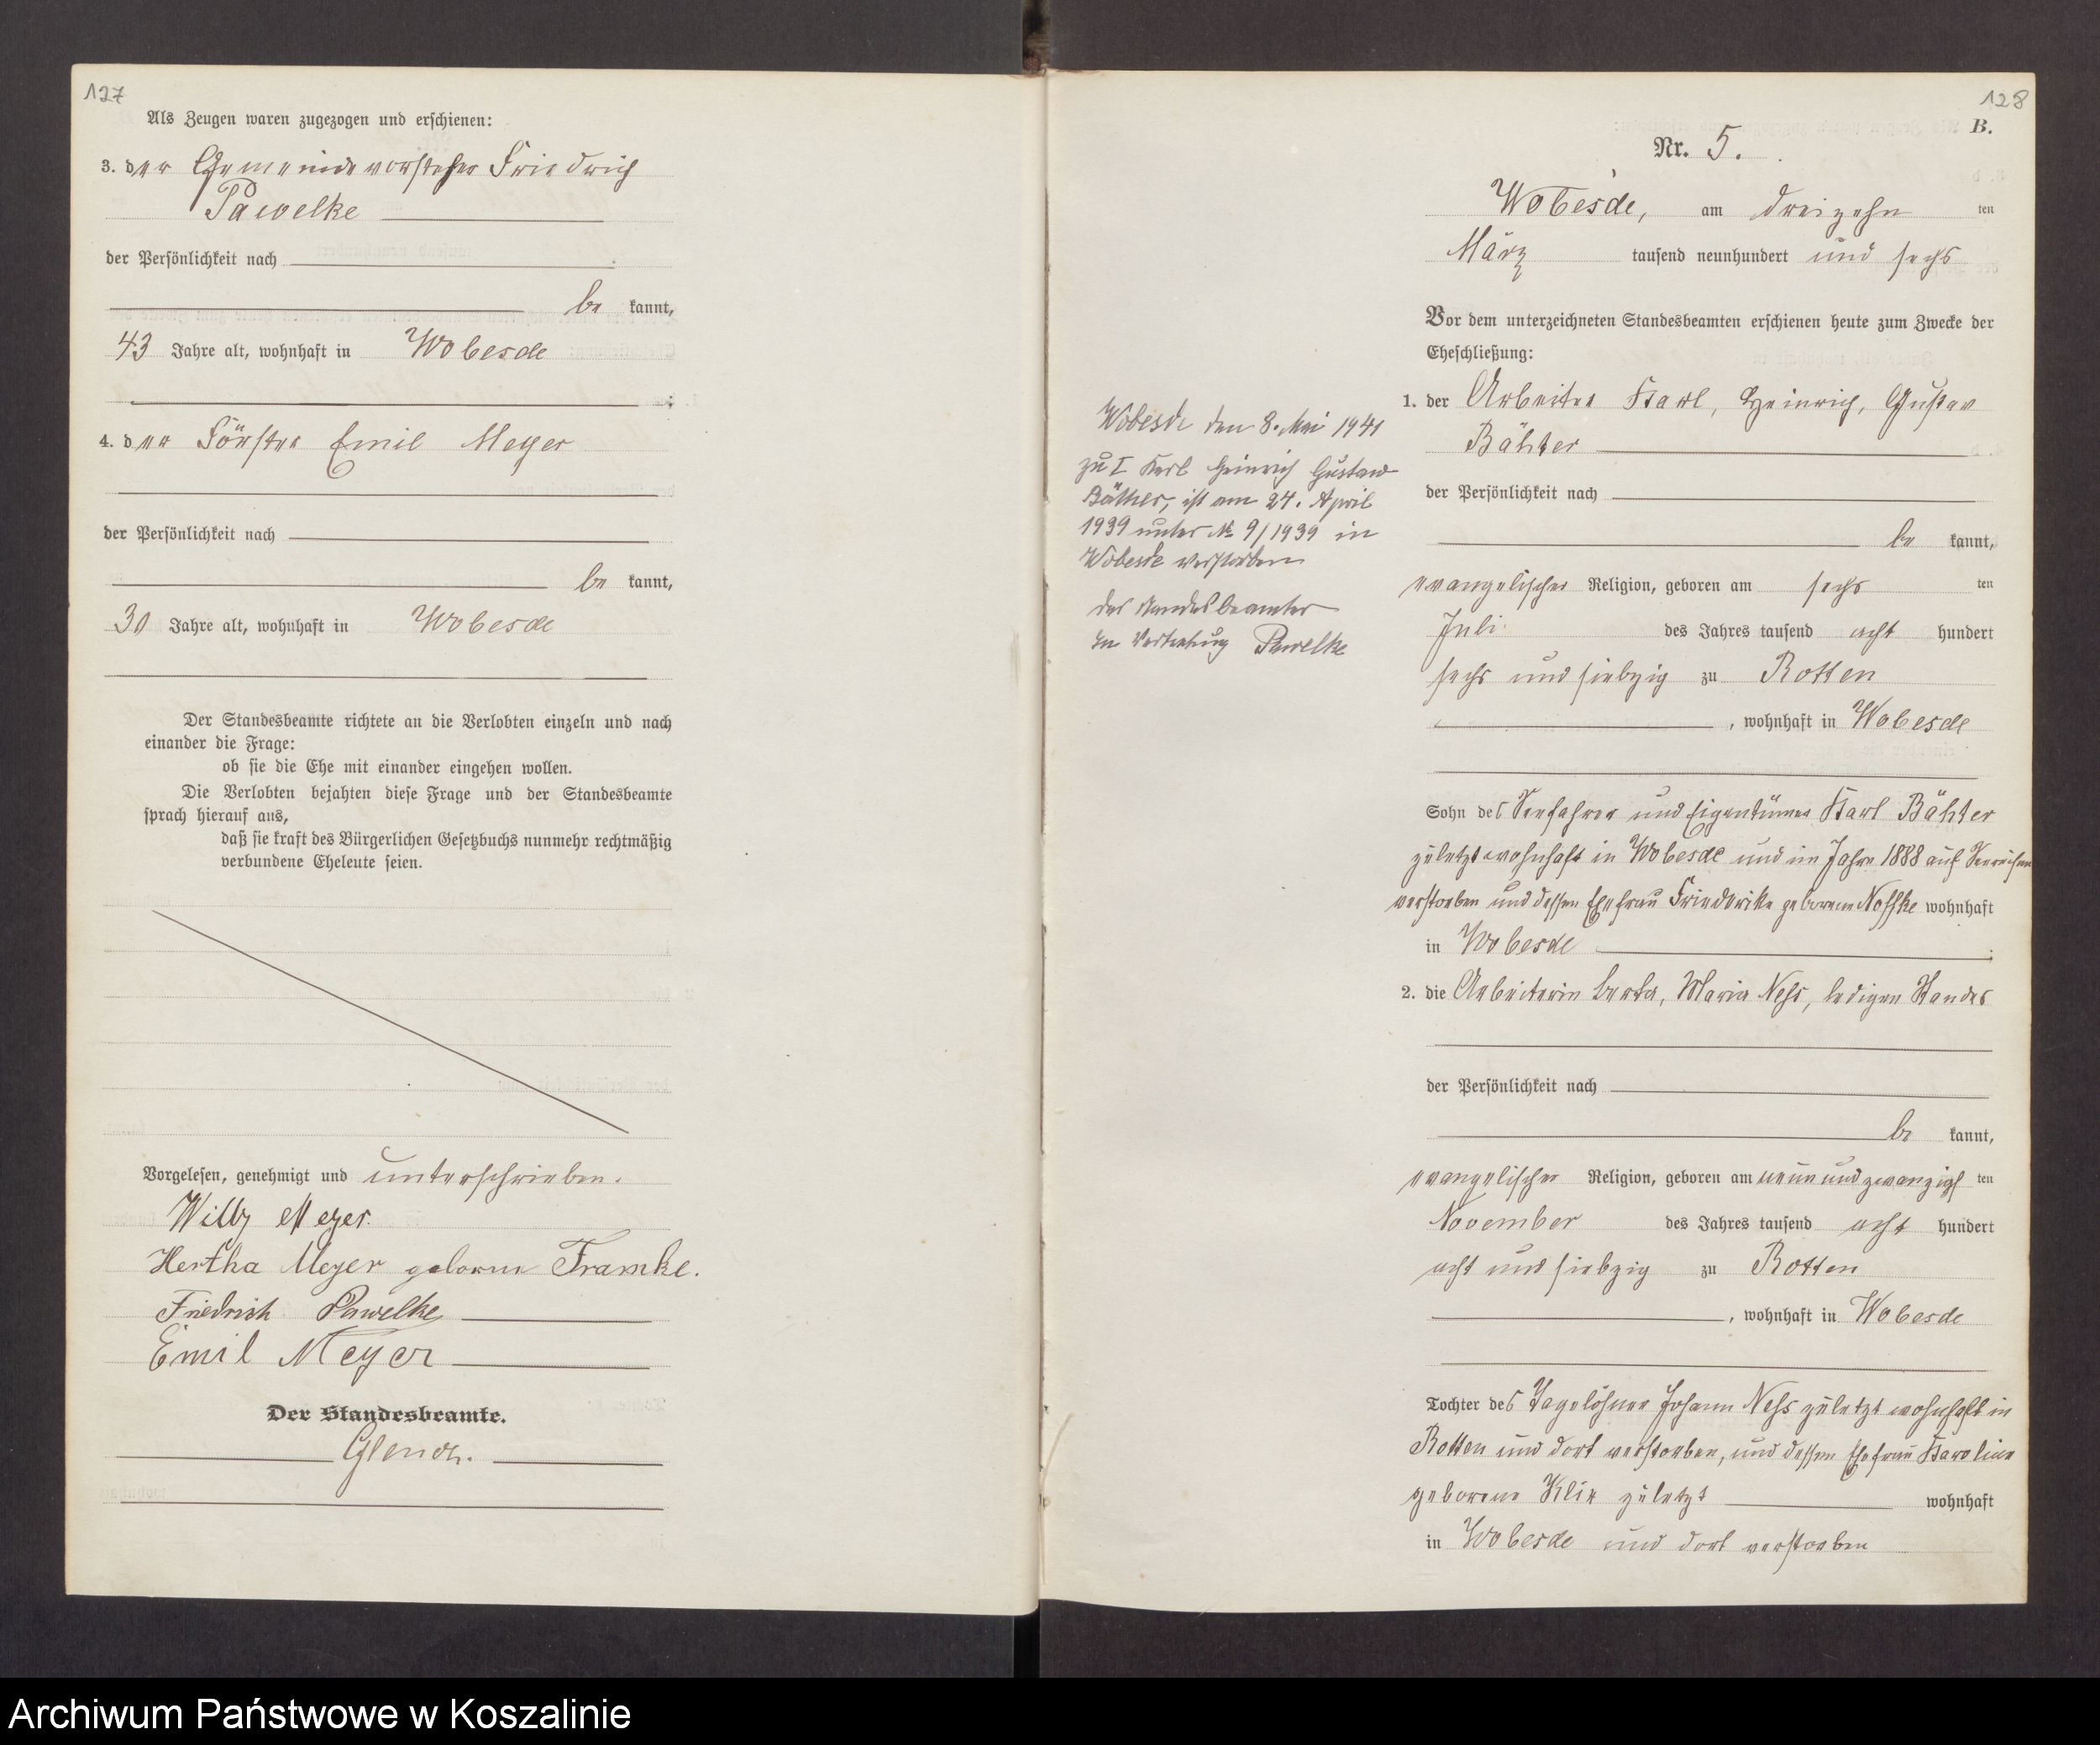 127
Als Zeugen waren zugezogen und erschienen:
3. der Gemeindevorsteher Friedrich
Pawelke
der Persönlichkeit nach
be kannt,
43 Jahre alt, wohnhaft in Wobesde
4. der Förster Emil Meyer
der Persönlichkeit nach
be kannt,
30 Jahre alt, wohnhaft in Wobesde
Der Standesbeamte richtete an die Verlobten einzeln und nach
einander die Frage:
ob sie die Ehe mit einander eingehen wollen.
Die Verlobten bejahten diese Frage und der Standesbeamte
sprach hierauf aus,
daß sie kraft des Bürgerlichen Gesetzbuchs nunmehr rechtmäßig
verbundene Eheleute seien.
Vorgelesen, genehmigt und unterschrieben.
Willy Meyer.
Hertha Meyer geborene Framke.
Friedrich Pawelke
Emil Meyer
Der Standesbeamte.
128
B.
Nr. 5.
Wobesde, am dreizehn ten
März tausend neunhundert und sechs
Vor dem unterzeichneten Standesbeamten erschienen heute zum Zwecke der
Eheschließung:
1. der Arbeiter Karl, Heinrich, Gustav
Bähter
der Persönlichkeit nach
be kannt,
evangelischer Religion, geboren am sechs ten
Juli des Jahres tausend acht hundert
sechs und siebzig zu Rotten
, wohnhaft in Wobesde
Sohn des Seefahrer und Eigentümer Karl Bähter
zuletzt wohnhaft in Wobesde und im Jahre 1888 auf Seereisen
verstorben und dessen Ehefrau Friederike geborene Noffke wohnhaft
in Wobesde
2. die Arbeiterin Berta, Maria Nehs, ledigen Standes
der Persönlichkeit nach
be kannt,
evangelischer Religion, geboren am neunundzwanzigsten
November des Jahres tausend acht hundert
acht und siebzig zu Rotten
, wohnhaft in Wobesde
Tochter des Tagelöhner Johann Nehs zuletzt wohnhaft in
Rotten und dort verstorben, und dessen Ehefrau Karoline
geborene Klix zuletzt wohnhaft
in Wobesde und dort verstorben
Wobesde den 8. Mai 1941
zu I Karl Heinrich Gustav
Bäther, ist am 24. April
1939 unter № 9/1939 in
Wobesde verstorben
der Standesbeamter
In Vertretung Pawelke
Archiwum Państwowe w Koszalinie